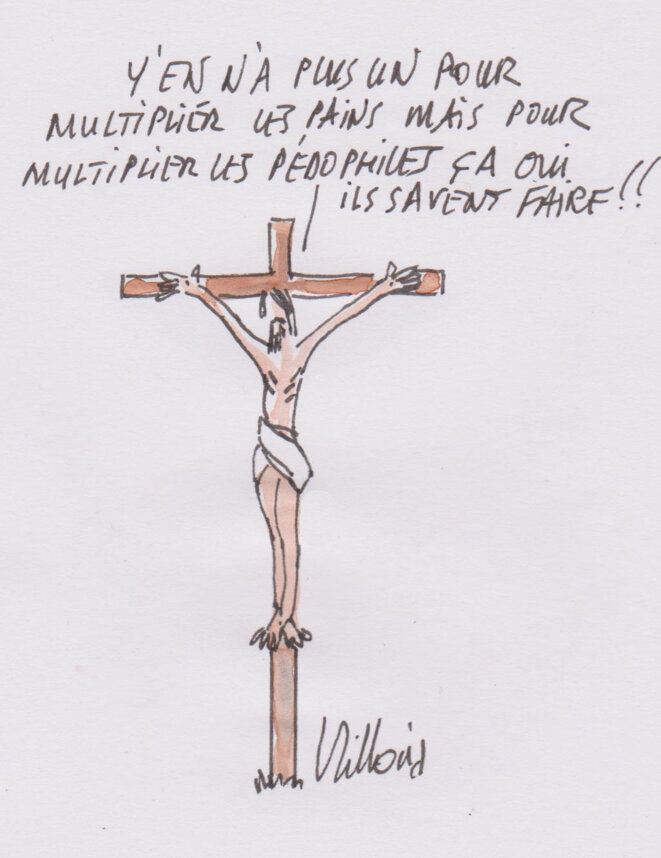 Y'EN N'A PLUS UN POUR
MULTIPLIER LES PAINS MAIS POUR
MULTIPLIER LES PÉDOPHILES ÇA OUI
ILS SAVENT FAIRE!!